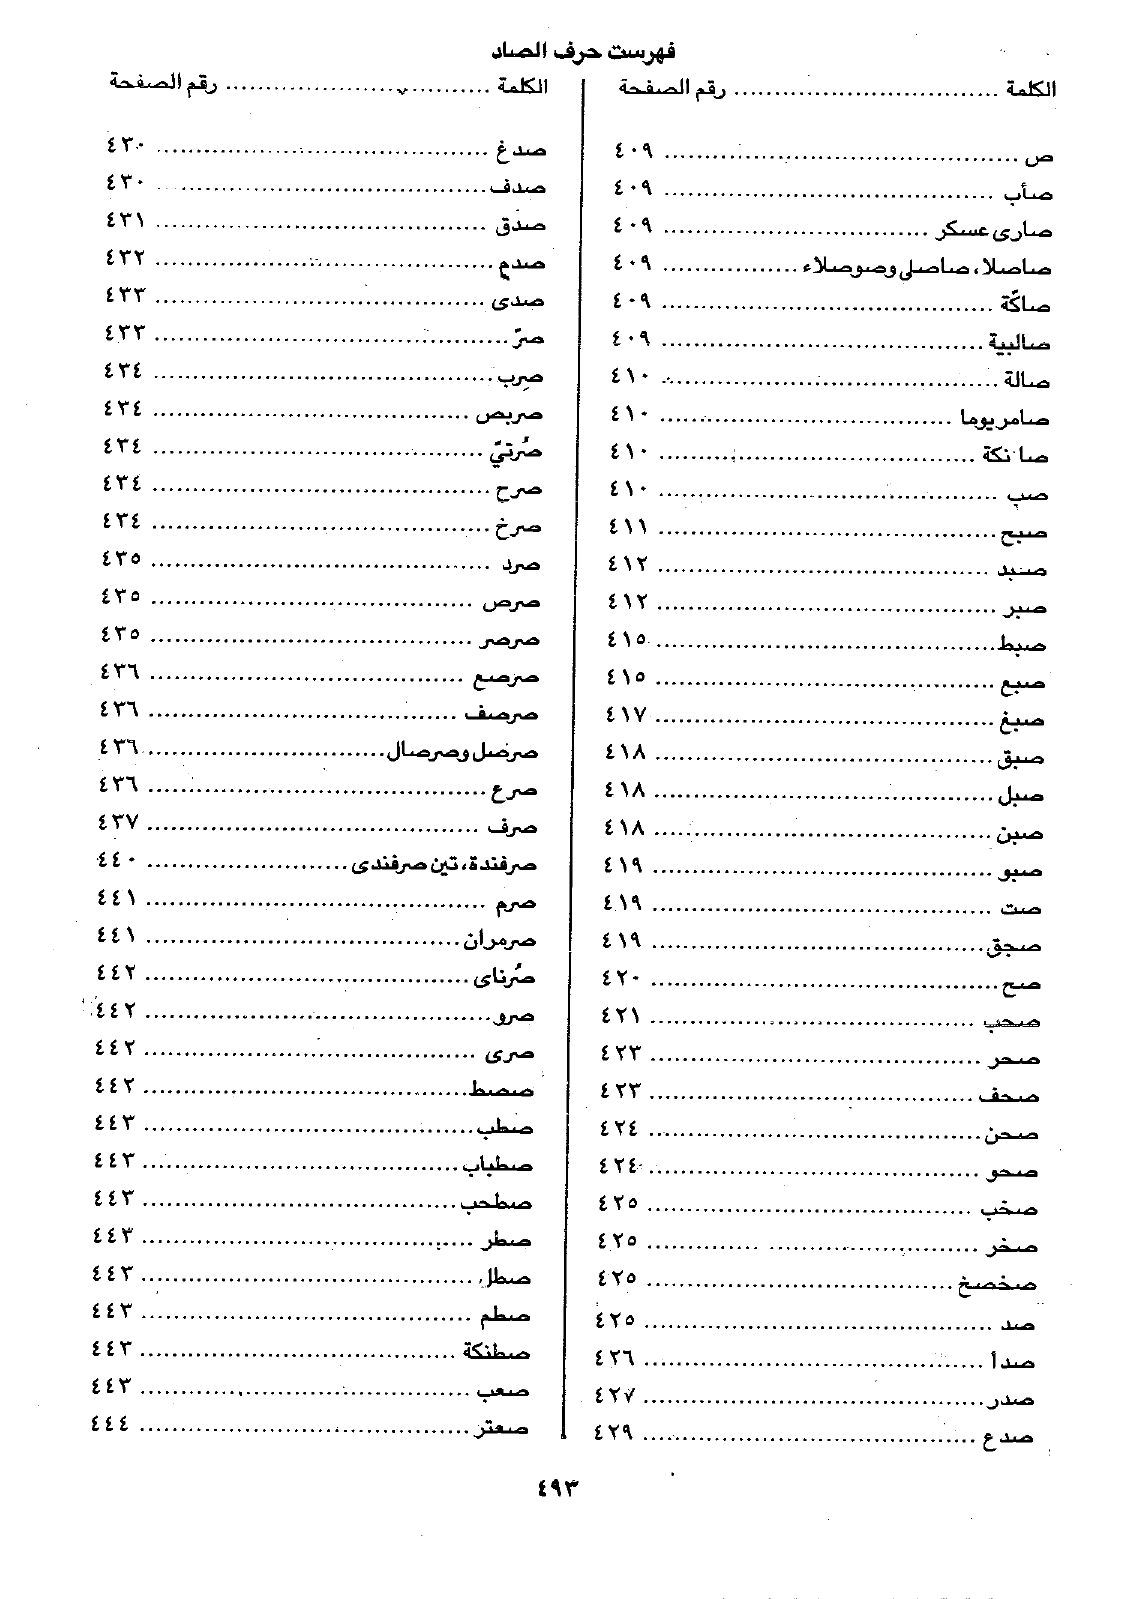 فهرست حرف الصاد
الكلمة ................................. رقم الصفحة
ص ................................. ٤٠٩
صأب ................................. ٤٠٩
صارى عسكر ................................. ٤٠٩
صاصلا، صاصلى وصوصلاء ................................. ٤٠٩
صاكّة ................................. ٤٠٩
صالبية ................................. ٤٠٩
صالة ................................. ٤١٠
صامر يوما ................................. ٤١٠
صانكة ................................. ٤١٠
صب ................................. ٤١٠
صبح ................................. ٤١١
صبد ................................. ٤١٢
صبر ................................. ٤١٢
صبط ................................. ٤١٥
صبع ................................. ٤١٥
صبغ ................................. ٤١٧
صبق ................................. ٤١٨
صبل ................................. ٤١٨
صبن ................................. ٤١٨
صبو ................................. ٤١٩
صت ................................. ٤١٩
صجق ................................. ٤١٩
صح ................................. ٤٢٠
صحب ................................. ٤٢١
صحر ................................. ٤٢٣
صحف ................................. ٤٢٣
صحن ................................. ٤٢٤
صحو ................................. ٤٢٤
صخب ................................. ٤٢٥
صخر ................................. ٤٢٥
صخصخ ................................. ٤٢٥
صد ................................. ٤٢٥
صدأ ................................. ٤٢٦
صدر ................................. ٤٢٧
صدع ................................. ٤٢٩
الكلمة ................................. رقم الصفحة
صدغ ................................. ٤٣٠
صدف ................................. ٤٣٠
صدق ................................. ٤٣١
صدم ................................. ٤٣٢
صدى ................................. ٤٣٣
صرّ ................................. ٤٣٣
صرب ................................. ٤٣٤
صربص ................................. ٤٣٤
صُرتيّ ................................. ٤٣٤
صرح ................................. ٤٣٤
صرخ ................................. ٤٣٤
صرد ................................. ٤٣٥
صرص ................................. ٤٣٥
صرصر ................................. ٤٣٥
صرصع ................................. ٤٣٦
صرصف ................................. ٤٣٦
صرصل وصرصال ................................. ٤٣٦
صرع ................................. ٤٣٦
صرف ................................. ٤٣٧
صرفندة، تين صرفندى ................................. ٤٤٠
صرم ................................. ٤٤١
صرمران ................................. ٤٤١
صُرناى ................................. ٤٤٢
صرو ................................. ٤٤٢
صرى ................................. ٤٤٢
صصط ................................. ٤٤٢
صطب ................................. ٤٤٣
صطباب ................................. ٤٤٣
صطحب ................................. ٤٤٣
صطر ................................. ٤٤٣
صطل ................................. ٤٤٣
صطم ................................. ٤٤٣
صطنكة ................................. ٤٤٣
صعب ................................. ٤٤٣
صعتر ................................. ٤٤٤
٤٩٣